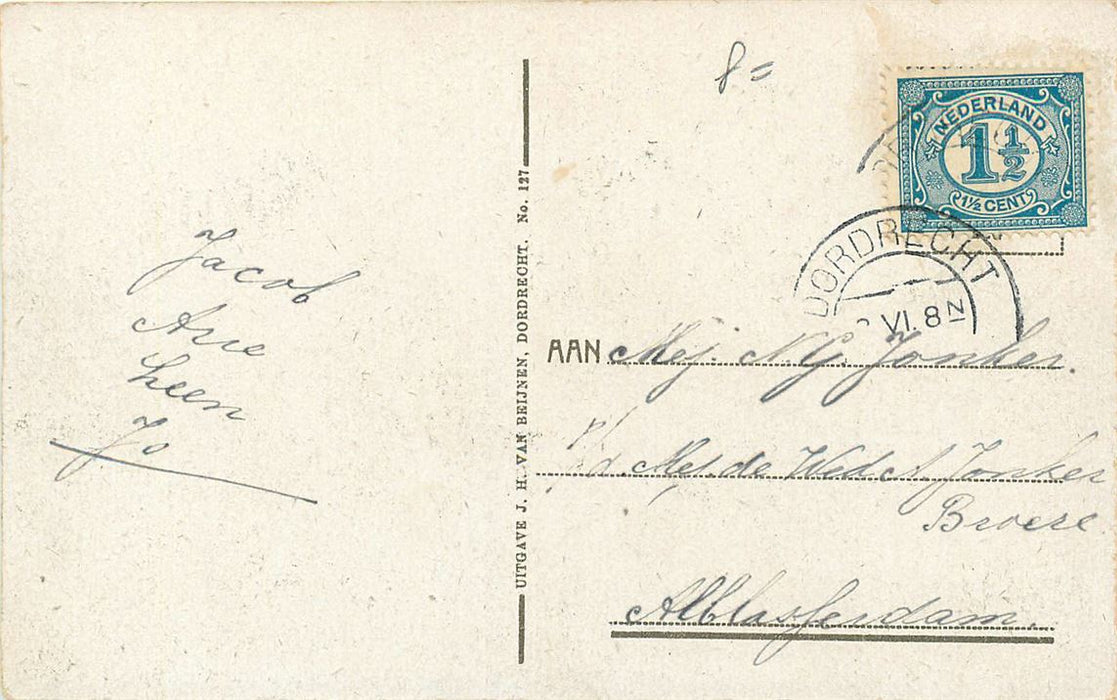 Jacob
Arie
Leen
Jo
UITGAVE J. H. VAN BEIJNEN, DORDRECHT. No. 127
8=
NEDERLAND
1½
1½ CENT
DORDRECHT
VI. 8 N
AAN Mej. N.G. Jonker.
p/a. Mej. de Wed. A. Jonker
Broere
Alblasserdam.